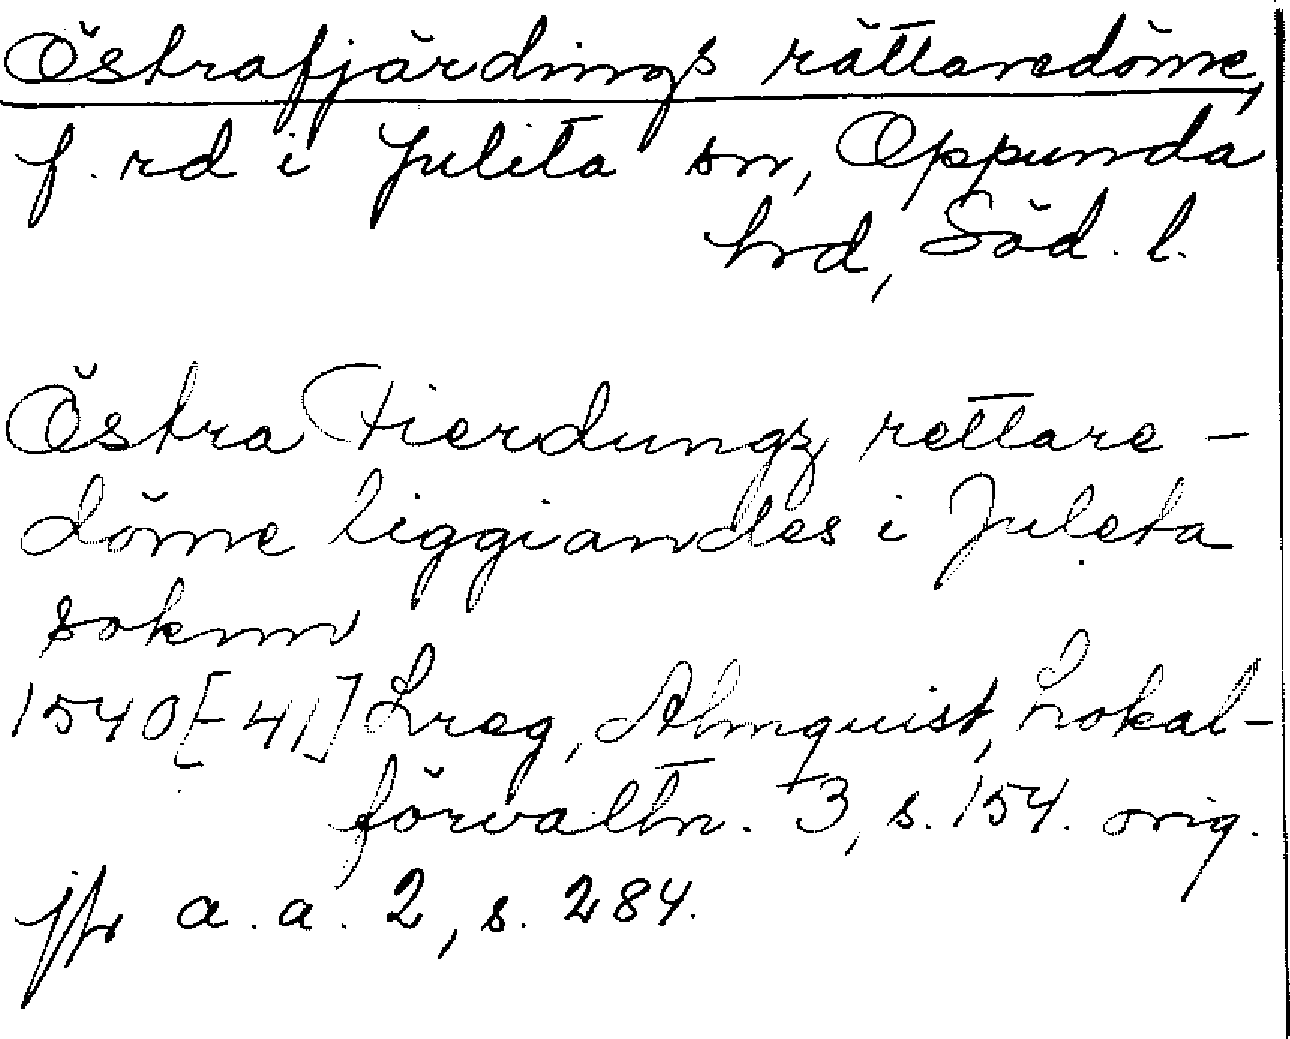 Östrafjärdings rättaredöme,
f.rd i Julita sn, Oppunda
hrd, Söd. l.
Östra Fierdungz rettare-
döme liggiandes i Juleta
soknn
1540[-41] Lreg, Almquist, Lokal-
förvaltn. 3, s. 154. orig.
jfr a.a. 2, s. 284.